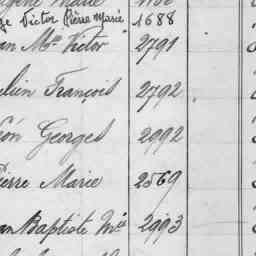 Victor Pierre Marie 1688
Mie Victor 2791
François 2792
Georges 2992
Pierre Marie 2569
Baptiste Mie 2993